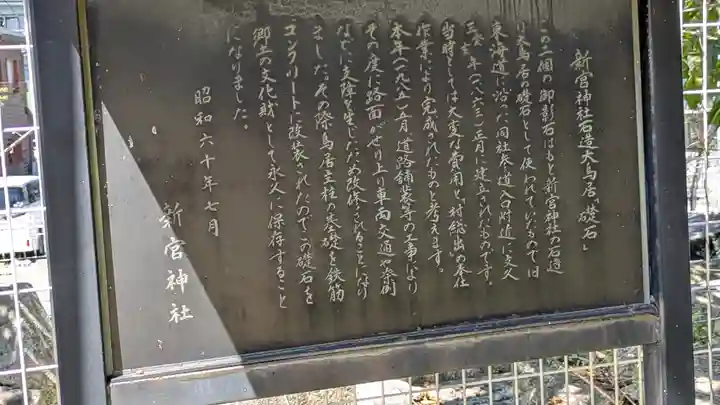 新宮神社石造大鳥居「礎石」
この二個の御影石はもと新宮神社の石造
り大鳥居の礎石として使われていたもので旧
東海道に沿った同社参道入口附近に文久
三癸亥年（一八六三）正月に建立されたものです。
当時としては大変な費用と「村総出」の奉仕
作業により完成されたものと考えます。
本年（一九八五）五月、道路舗装等の工事により
その度に路面がせり上り車両交通や祭例
などに支障を生じたため改修されることになり
ました。その際鳥居主柱の基礎を鉄筋
コンクリートに改装されたので、この礎石を
郷土の文化財として永久に保存すること
になりました。
昭和六十年七月
新宮神社